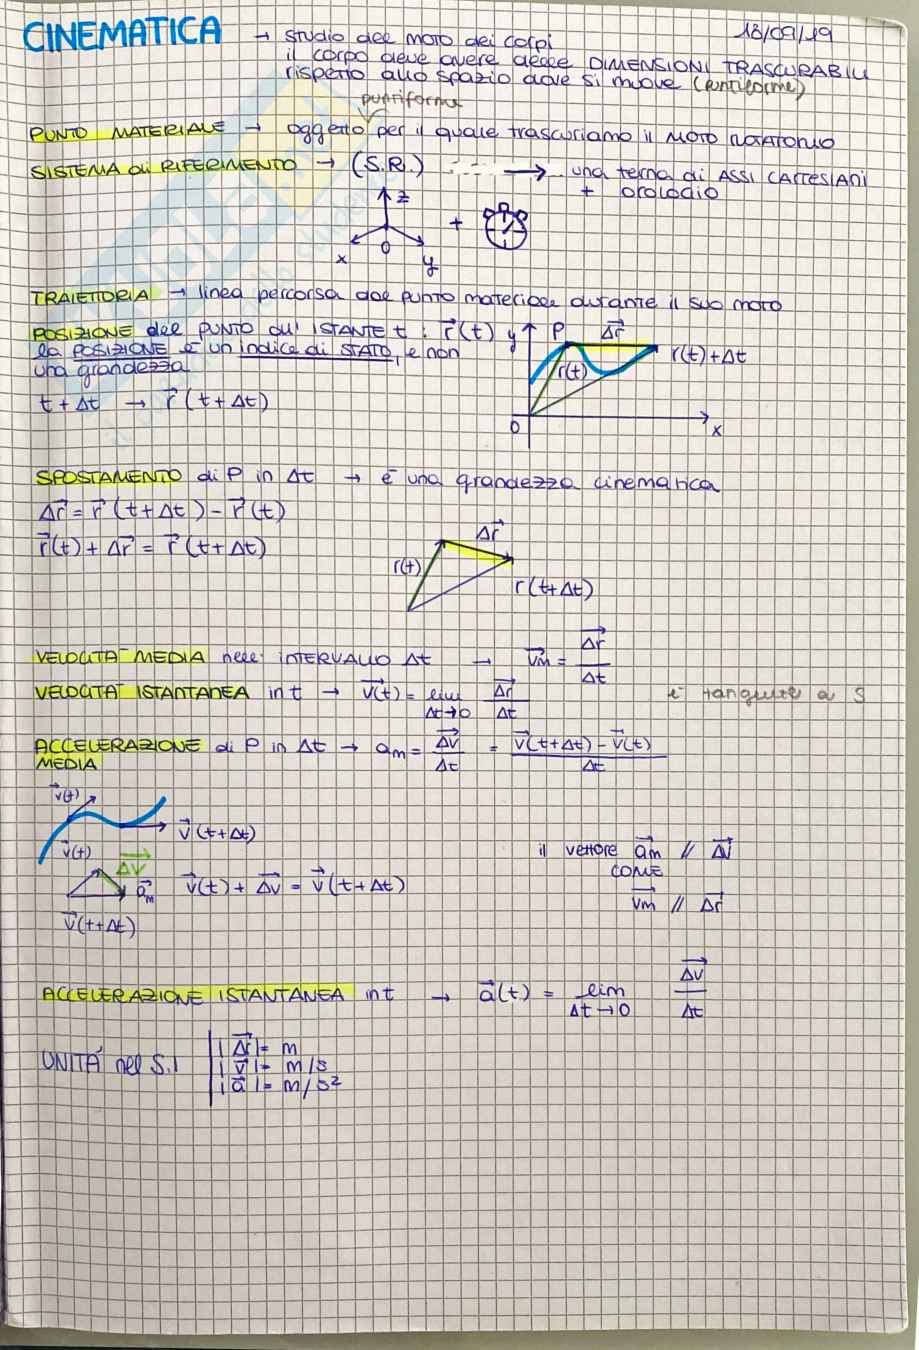 CINEMATICA → studio del moto dei corpi 18/09/19
il corpo deve avere delle DIMENSIONI TRASCURABILI
rispetto allo spazio dove si muove (puntiforme)
puntiforme
PUNTO MATERIALE → oggetto per il quale trascuriamo il MOTO ROTATORIO
SISTEMA di RIFERIMENTO → (S.R.) → una terna di ASSI CARTESIANI
+ orologio
z
+
x 0 y
TRAIETTORIA → linea percorsa dal punto materiale durante il suo moto
POSIZIONE del PUNTO all'ISTANTE t : r⃗(t)
la POSIZIONE è un indice di STATO, e non
una grandezza
t + Δt → r⃗ (t + Δt)
y P Δr⃗
r(t) r(t)+Δt
0 x
SPOSTAMENTO di P in Δt → è una grandezza cinematica
Δr⃗ = r⃗ (t + Δt) - r⃗ (t)
r⃗(t) + Δr⃗ = r⃗ (t + Δt)
Δr⃗
r(t)
r(t+Δt)
VELOCITA' MEDIA nell' INTERVALLO Δt → v⃗m = Δr⃗ / Δt
VELOCITA' ISTANTANEA in t → v⃗(t) = lim Δt→0 Δr⃗ / Δt è tangente a S
ACCELERAZIONE di P in Δt → am = Δv⃗ / Δt = v⃗(t+Δt) - v⃗(t) / Δt
MEDIA
v⃗(t)
v⃗ (t+Δt)
v⃗(t)
Δv⃗
a⃗m v⃗(t) + Δv⃗ = v⃗ (t + Δt)
v⃗(t+Δt)
il vettore a⃗m // Δv⃗
COME
v⃗m // Δr⃗
ACCELERAZIONE ISTANTANEA in t → a⃗(t) = lim Δt→0 Δv⃗ / Δt
UNITÀ nel S.I
|Δr⃗| = m
|v⃗| = m/s
|a⃗| = m/s²